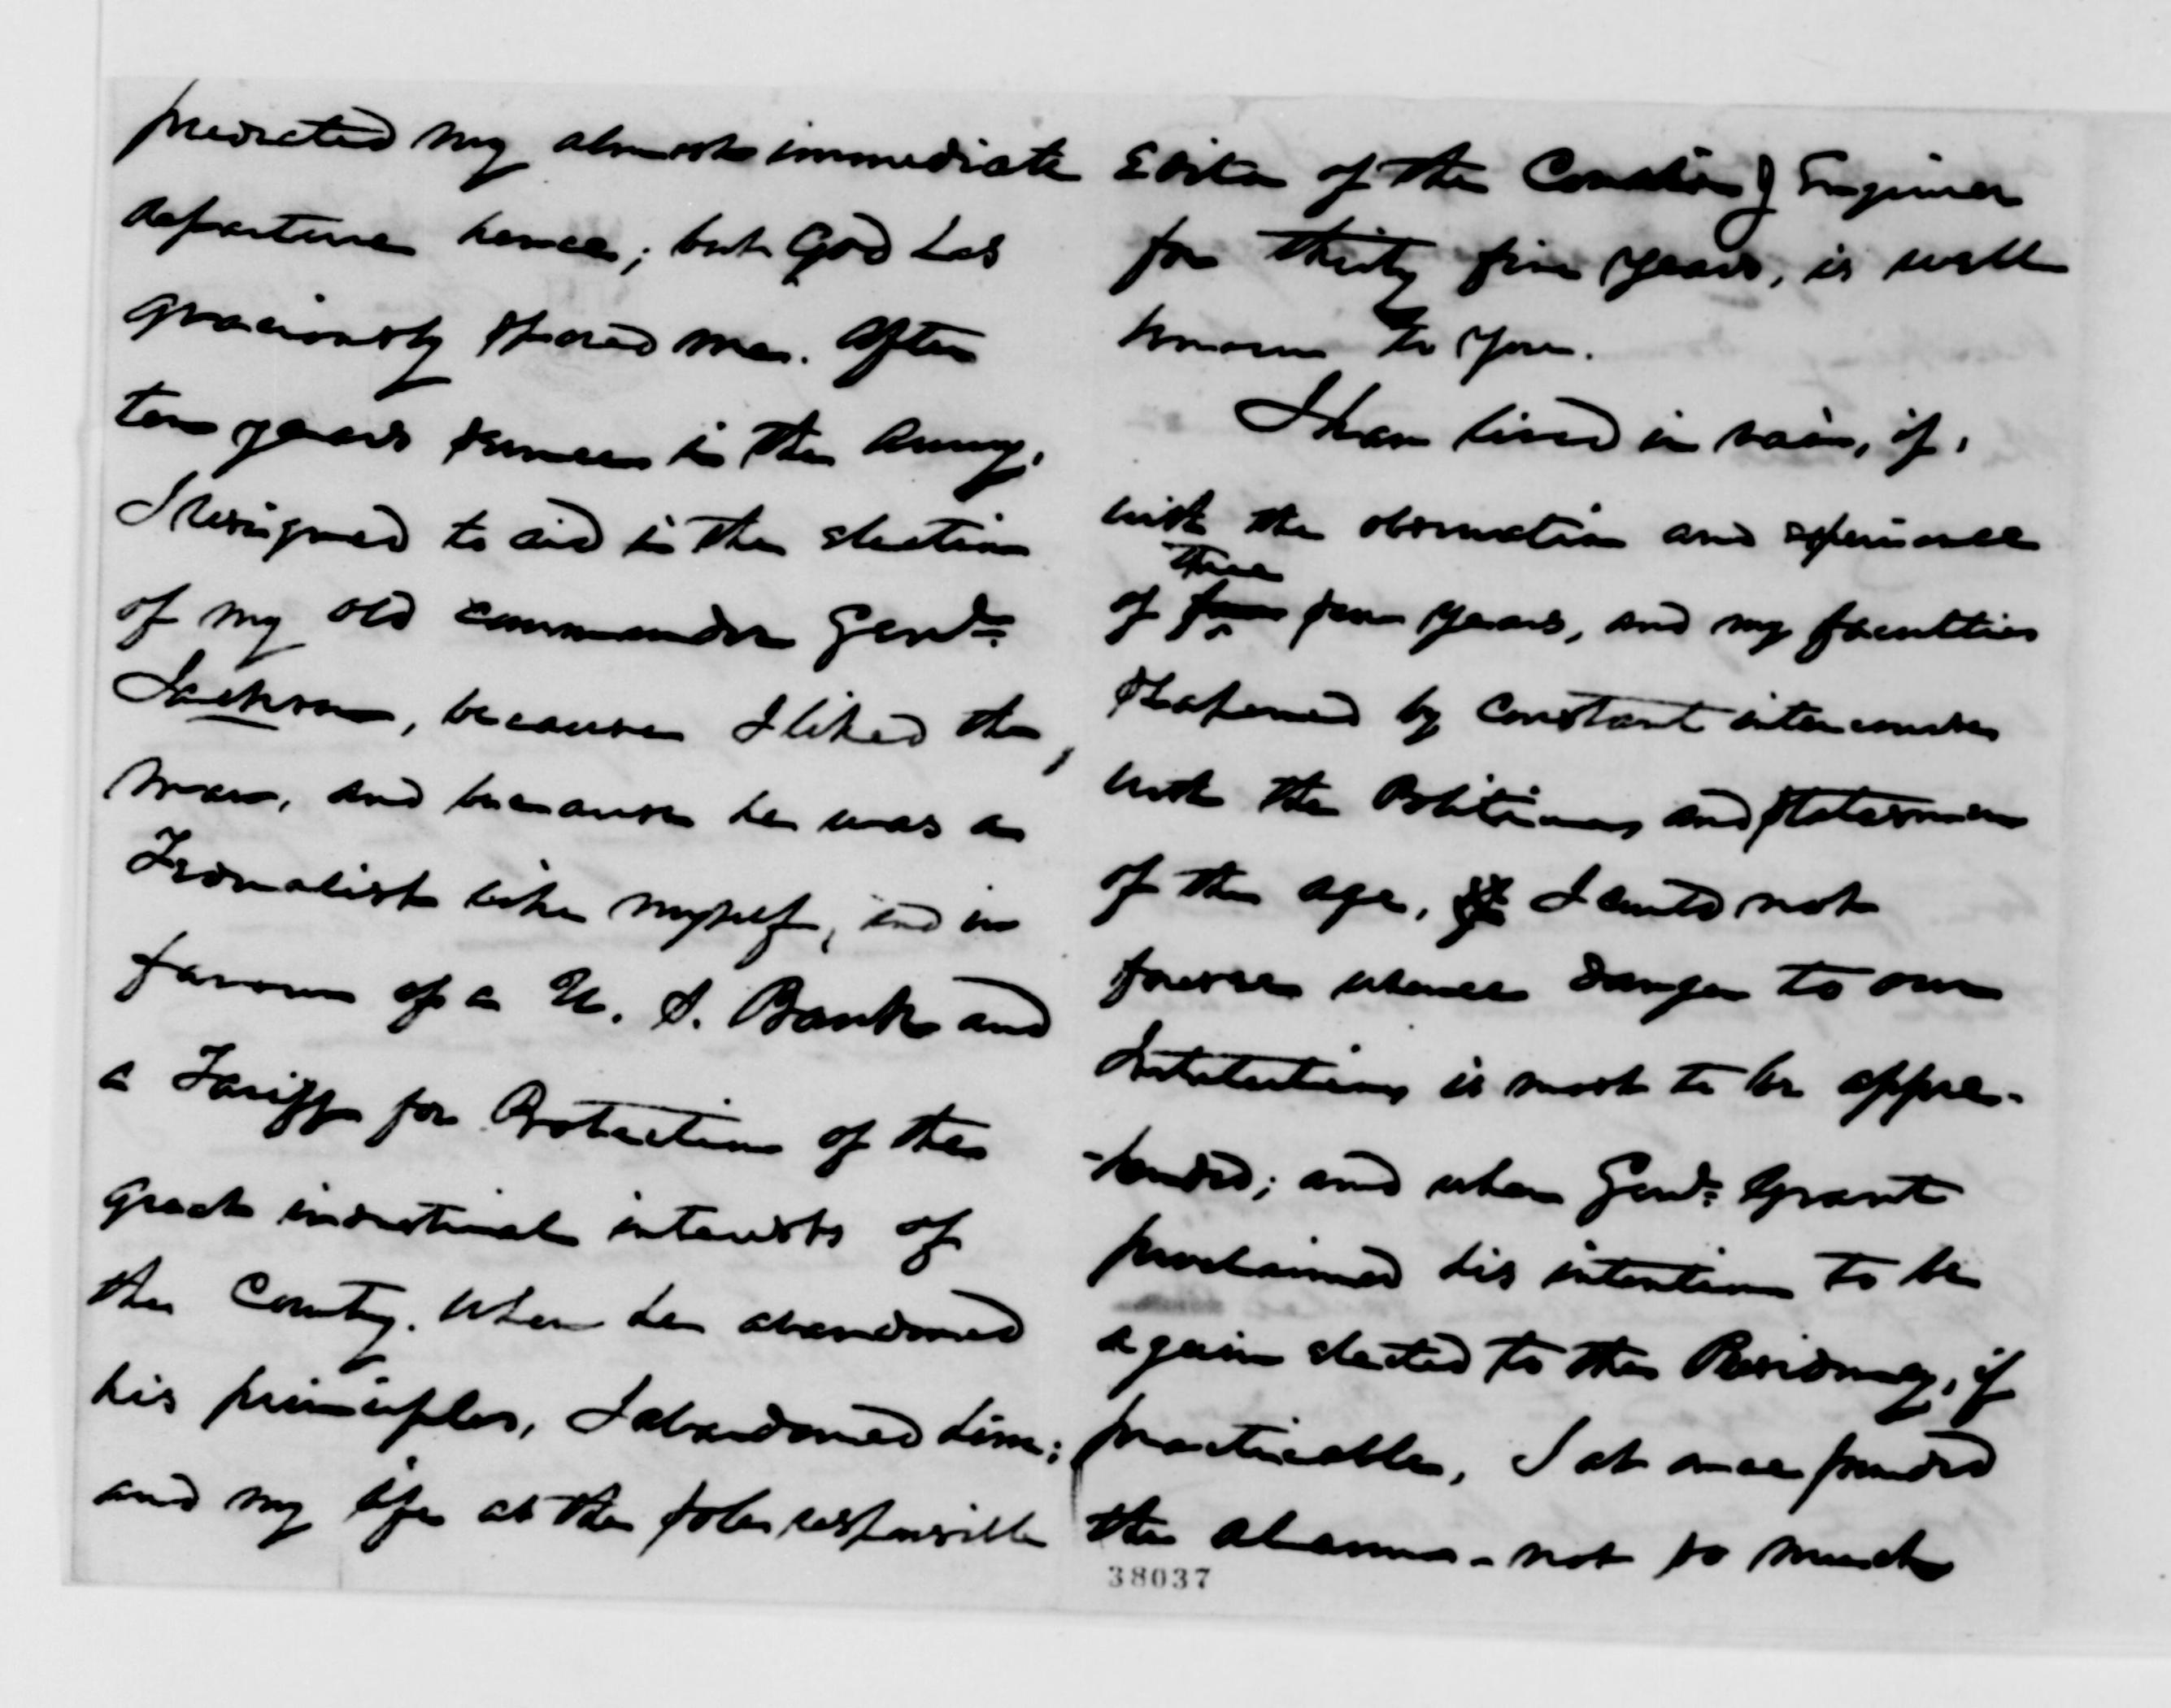 predicted my almost immediate
departure hence; but God has
graciously spared me. After
ten years service in the Army,
I resigned to aid in the election
of my old commander Genl.
Jackson, because I liked the
man, and because he was a
Federalist like myself, and in
favour of a U. S. Bank and
a Tariff for Protection of the
great industrial interests of
the Country. When he abandoned
his principles, I abandoned him;
and my life as the sole responsible
Editor of the Courier & Enquirer
for thirty five years, is well
known to you.
I have lived in vain, if,
with the observation and experience
of three score years, and my faculties
sharpened by constant intercourse
with the Politicians and Statesmen
of the age, I could not
foresee whence danger to our
Institutions is most to be appre-
-hended; and when Genl. Grant
proclaimed his intention to be
again elected to the Presidency, if
practicable, I at once sounded
the alarm - not so much
38037